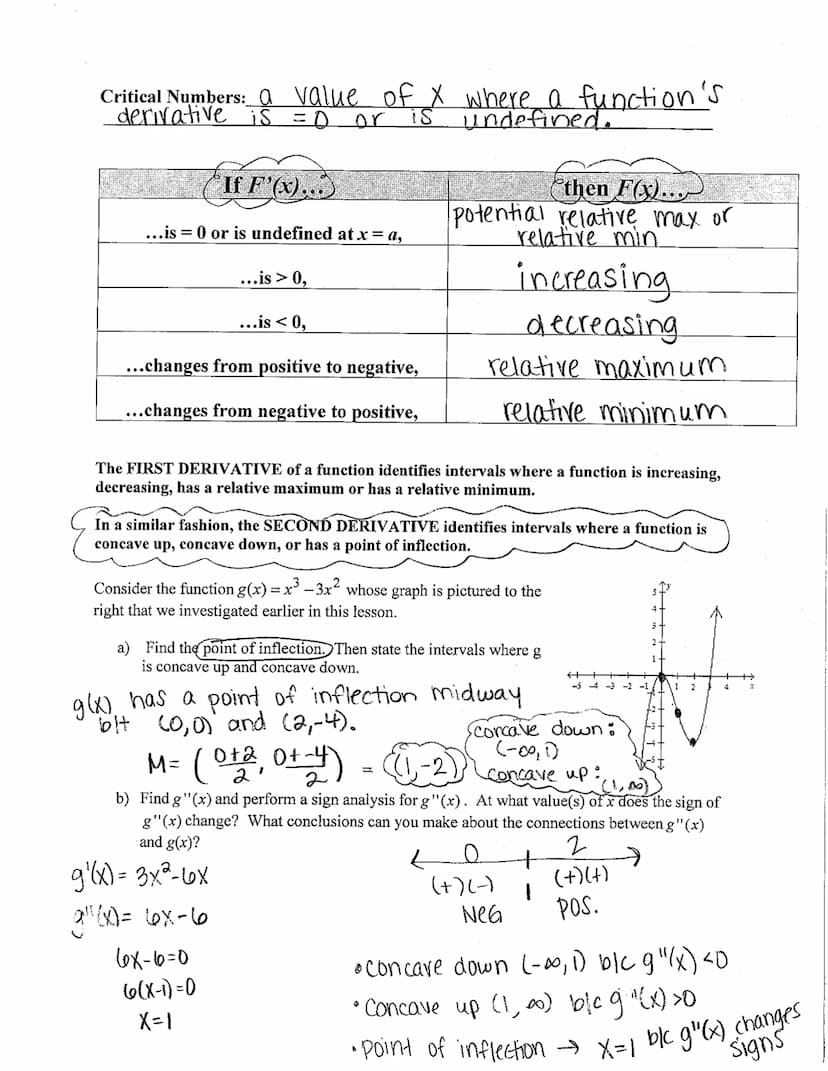 Critical Numbers: a value of x where a function's
derivative is = 0 or is undefined.
If F'(x)... then F(x)...
...is = 0 or is undefined at x = a, potential relative max or
relative min
...is > 0, increasing
...is < 0, decreasing
...changes from positive to negative, relative maximum
...changes from negative to positive, relative minimum
The FIRST DERIVATIVE of a function identifies intervals where a function is increasing,
decreasing, has a relative maximum or has a relative minimum.
In a similar fashion, the SECOND DERIVATIVE identifies intervals where a function is
concave up, concave down, or has a point of inflection.
Consider the function g(x) = x³ – 3x² whose graph is pictured to the
right that we investigated earlier in this lesson.
a) Find the point of inflection. Then state the intervals where g
is concave up and concave down.
g(x) has a point of inflection midway
b/t (0,0) and (2,-4).
M= (0+2/2, 0+-4/2) = (1,-2)
concave down:
(-∞,1)
concave up:
(1,∞)
b) Find g''(x) and perform a sign analysis for g''(x). At what value(s) of x does the sign of
g''(x) change? What conclusions can you make about the connections between g''(x)
and g(x)?
g'(x) = 3x²-6x
g''(x) = 6x-6
6x-6=0
6(x-1)=0
x=1
0 2
(+)(-) 1 (+)(+)
NEG POS.
• concave down (-∞,1) b/c g''(x) <0
• Concave up (1,∞) b/c g''(x) >0
• point of inflection → x=1 b/c g''(x) changes
signs